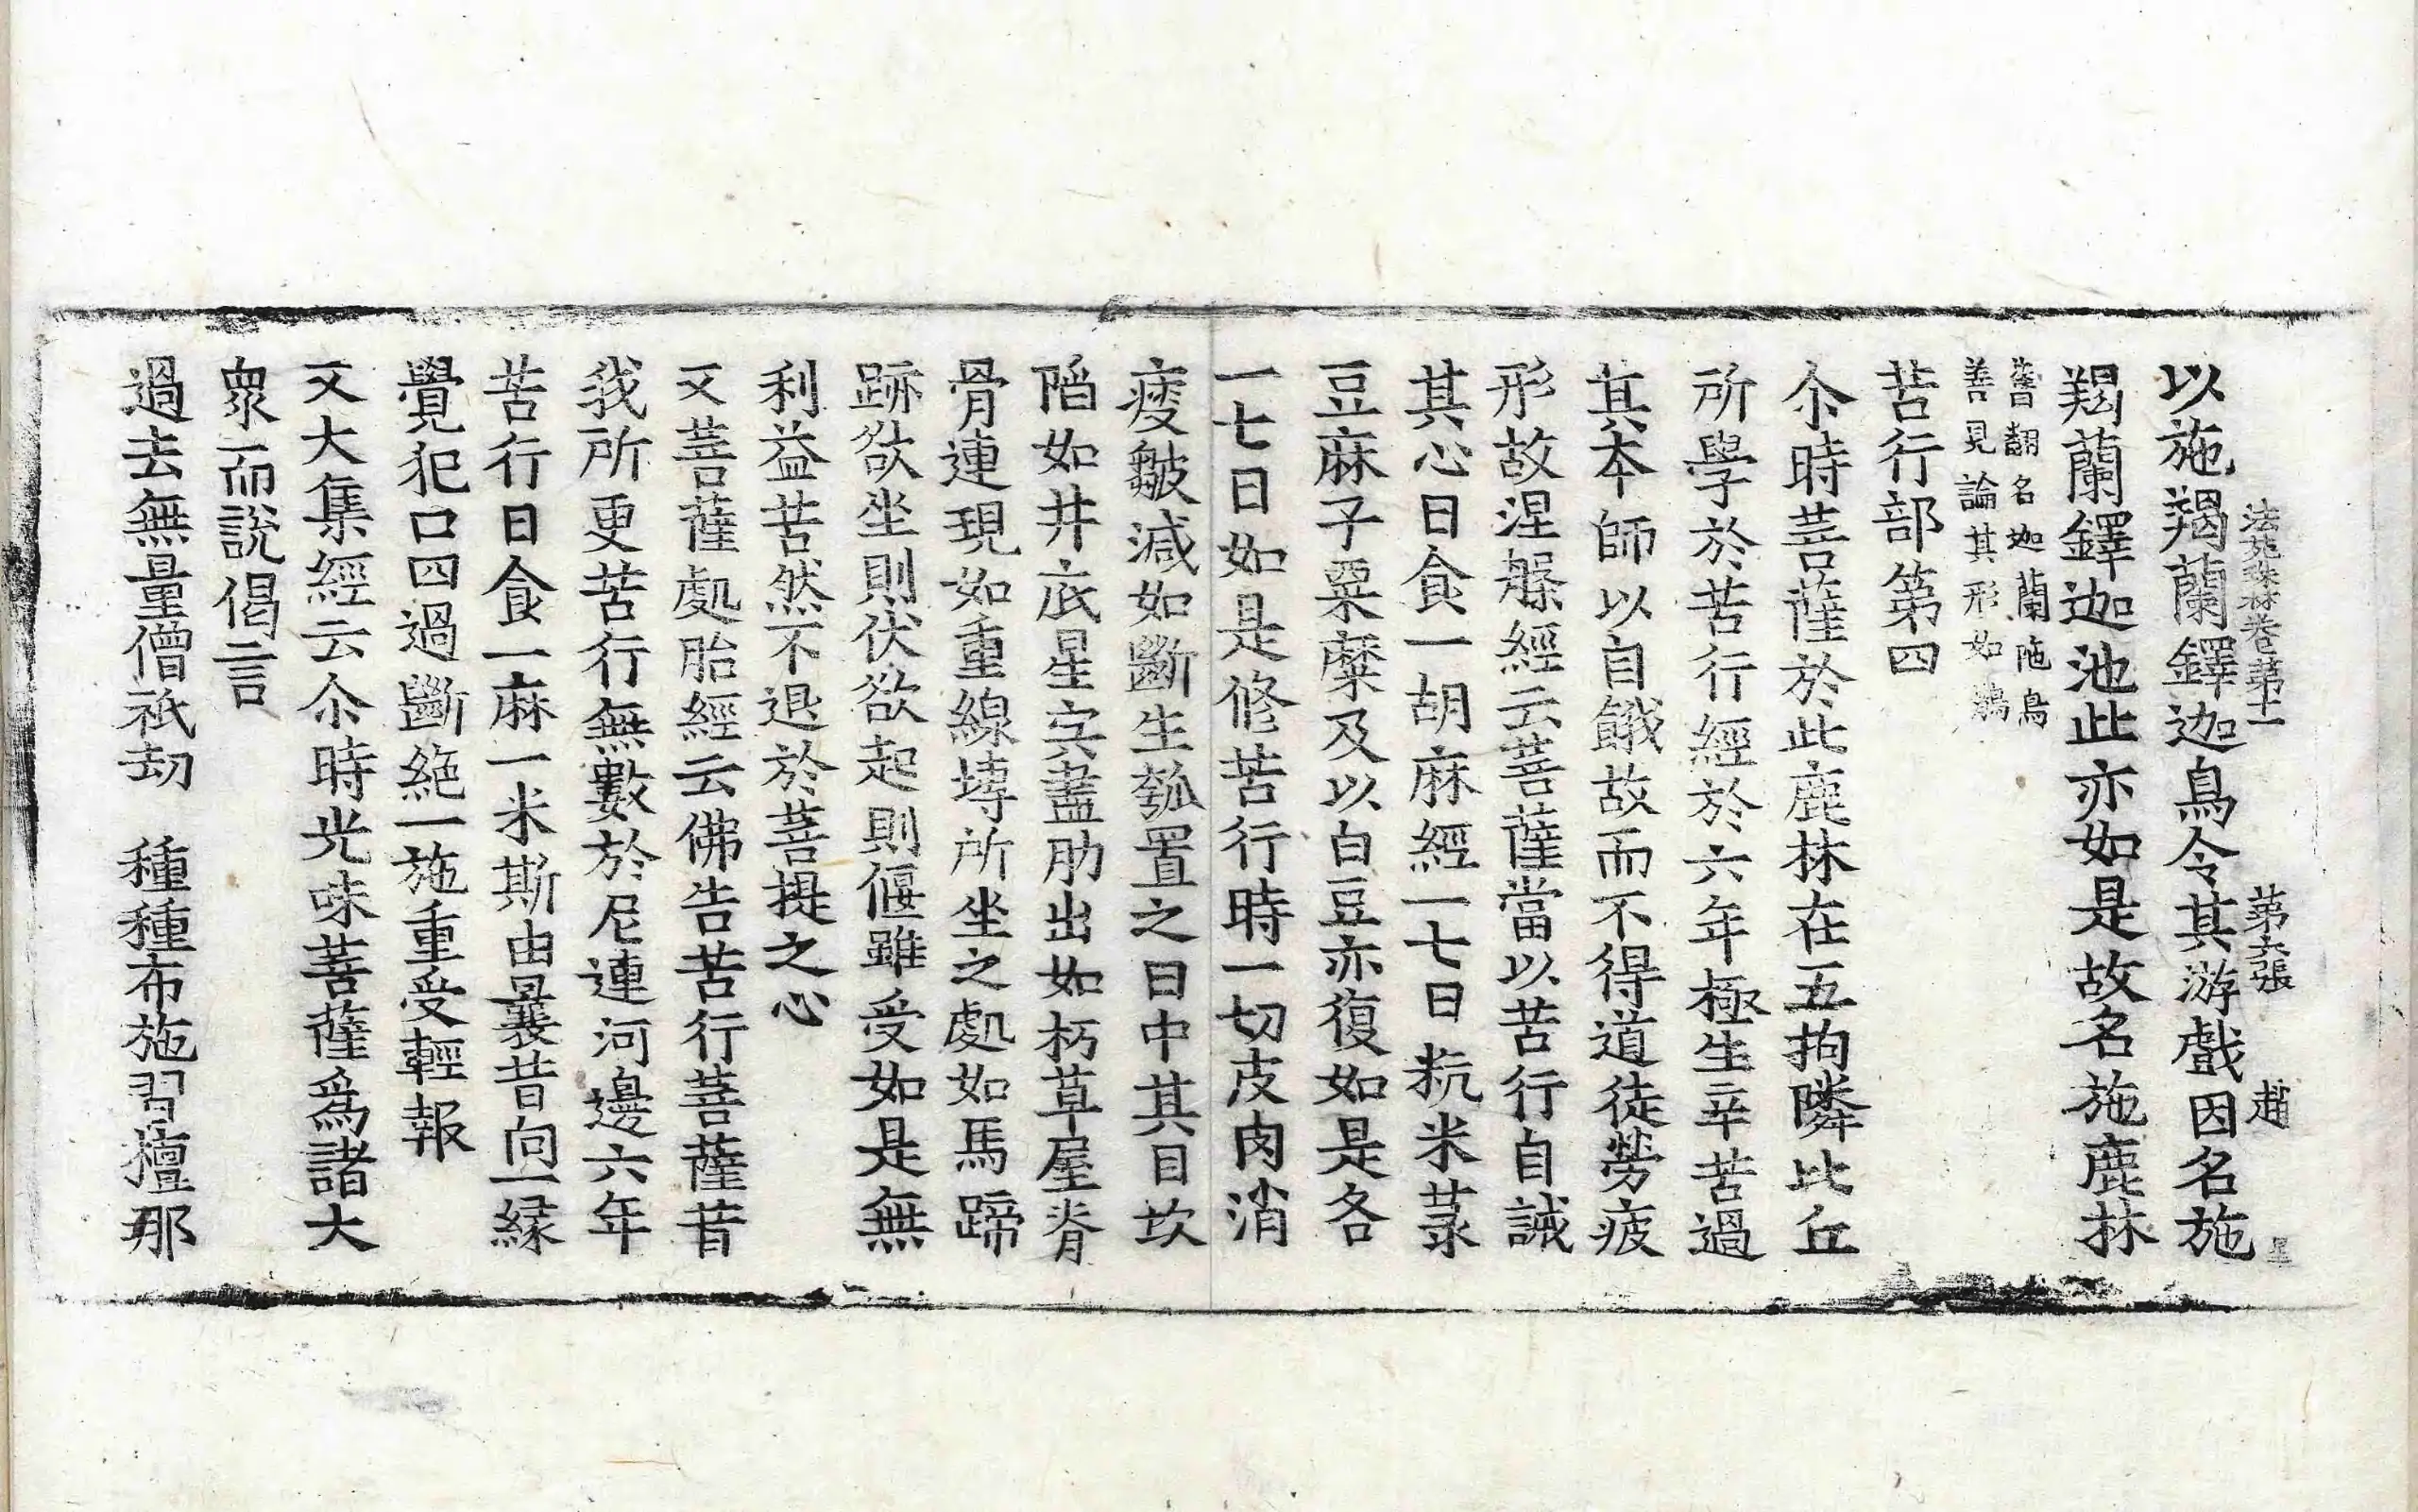 法苑珠林卷第十一 第六張 趙
以施羯蘭鐸迦鳥令其游戲因名施
羯蘭鐸迦池此亦如是故名施鹿林
舊翻名迦蘭陁鳥
善見論其形如鵲
苦行部第四
尒時菩薩於此鹿林在五拘隣比丘
所學於苦行經於六年極生辛苦過
其本師以自餓故而不得道徒勞疲
形故涅槃經云菩薩當以苦行自誡
其心日食一胡麻經一七日粇米菉
豆麻子粟糜及以白豆亦復如是各
一七日如是修苦行時一切皮肉消
瘦皺減如斷生瓠置之日中其目坎
陷如井底星宍盡肋出如朽草屋脊
骨連現如重線塼所坐之處如馬蹄
跡欲坐則伏欲起則偃雖受如是無
利益苦然不退於菩提之心
又菩薩處胎經云佛告苦行菩薩昔
我所更苦行無數於尼連河邊六年
苦行日食一麻一米斯由曩昔向一緣
覺犯口四過斷絶一施重受輕報
又大集經云尒時光味菩薩爲諸大
衆而說偈言
過去無量僧祇劫 種種布施習檀那